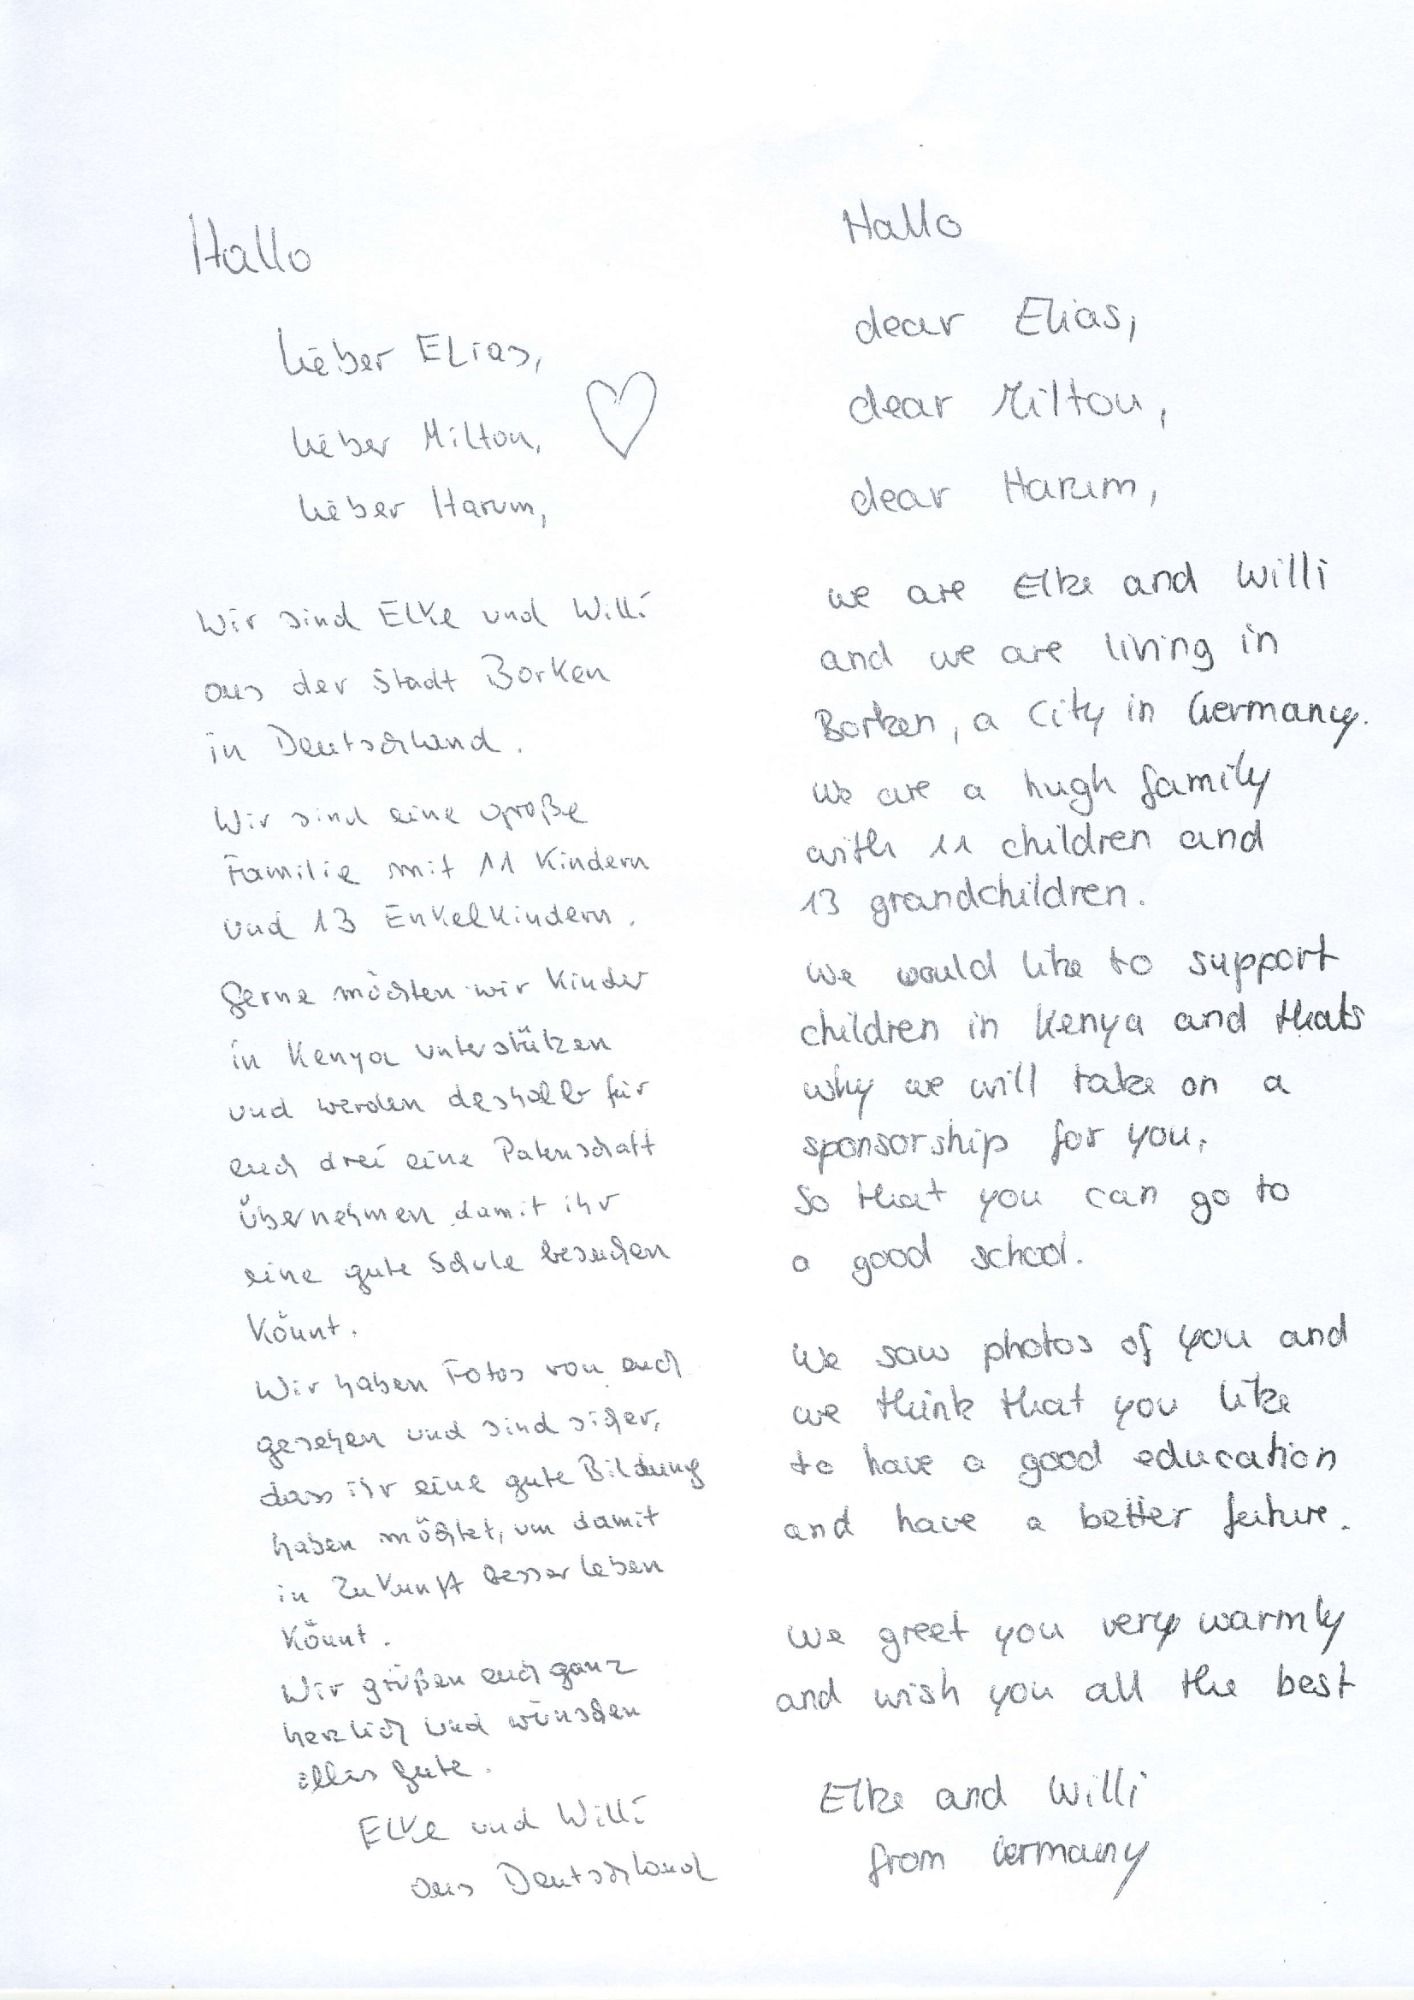 Hallo
lieber Elias,
lieber Milton,
lieber Harum,
Wir sind Elke und Willi
aus der Stadt Borken
in Deutschland.
Wir sind eine große
Familie mit 11 Kindern
und 13 Enkelkindern.
Gerne möchten wir Kinder
in Kenya unterstützen
und werden deshalb für
euch drei eine Patenschaft
übernehmen damit ihr
eine gute Schule besuchen
könnt.
Wir haben Fotos von euch
gesehen und sind sicher,
dass ihr eine gute Bildung
haben möchtet, um damit
in Zukunft besser leben
könnt.
Wir grüßen euch ganz
herzlich und wünschen
alles Gute.
Elke und Willi
aus Deutschland
Hallo
dear Elias,
dear Milton,
dear Harum,
we are Elke and Willi
and we are living in
Borken, a City in Germany.
We are a hugh family
with 11 children and
13 grandchildren.
We would like to support
children in Kenya and thats
why we will take on a
sponsorship for you,
So that you can go to
a good school.
We saw photos of you and
we think that you like
to have a good education
and have a better future.
We greet you very warmly
and wish you all the best
Elke and Willi
from Germany